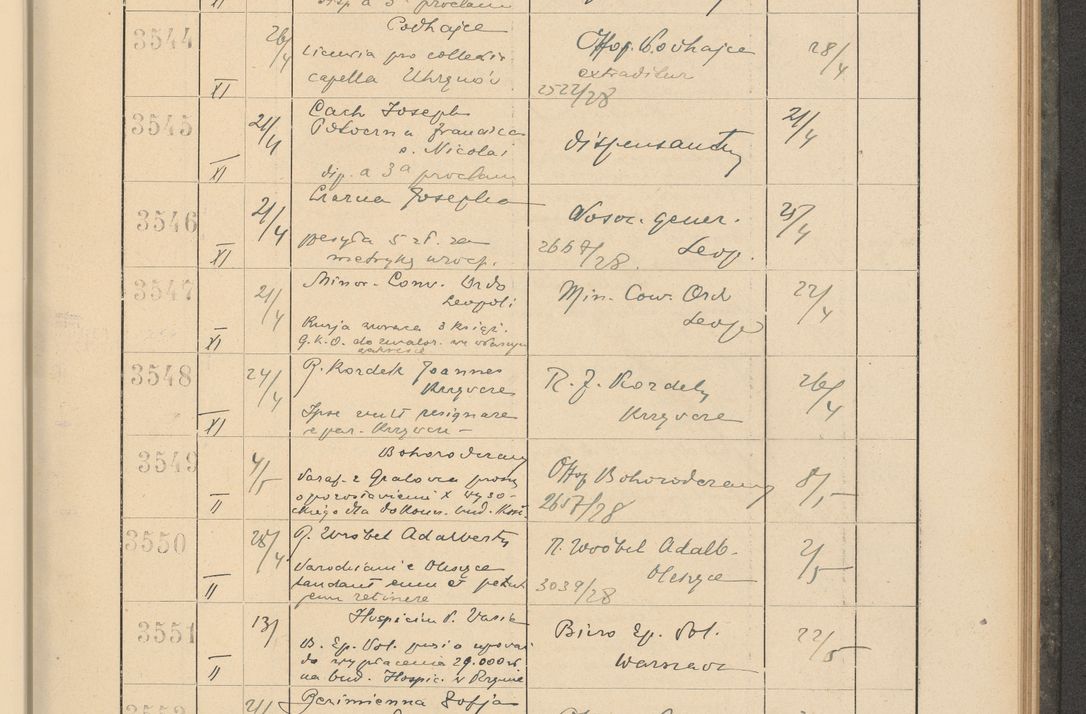 3544 XI 26/4 Podhajce
licencia pro collectis
capella Uhrynów
Offop. Podhajce
extraditur
2522/28
28/4
3545 XI 21/4 Cach Joseph
Francisca
s. Nicolai
disp. a 3ª proclam
dispensantur
21/4
3546 XI 21/4 Czarna Josepha
posyła 5 zł. za
metrykę urocz.
gener.
Leop.
2667/28
25/4
3547 XI 21/4 Minor. Conv. Ordo
Leopoli
Kurja zwraca 3 księgi
G.K.O. do zwalor. we własnym
zakresie
Min. Conv. Ord
Leop
22/4
3548 XI 24/4 P. Kordek Joannes
Krzywcze
Ipse vult resignare
e par. Krzywcze
R. J. Kordek
Krzywcze
26/4
3549 II 4/5 Bohorodczany
Paraf. z Grabowca proszą
o pozostawienie X Wyso-
ckiego dla dokoń. bud. Kość.
Offop Bohorodczany
2657/28
8/5
3550 II 28/4 P. Wróbel Adalbertus
Parochiani e Oleszyce
laudant eum et petunt
eum retinere
R. Wróbel Adalb.
Oleszyce
3039/28
2/5
3551 II 13/ Hospicium P.
B. Ep. Pol. prosi o
do wypłacenia 29.000 zł.
na bud. Hospic. w Rzymie
Biuro Ep. Pol.
Warszawa
22/5
3552 21/ Zofja